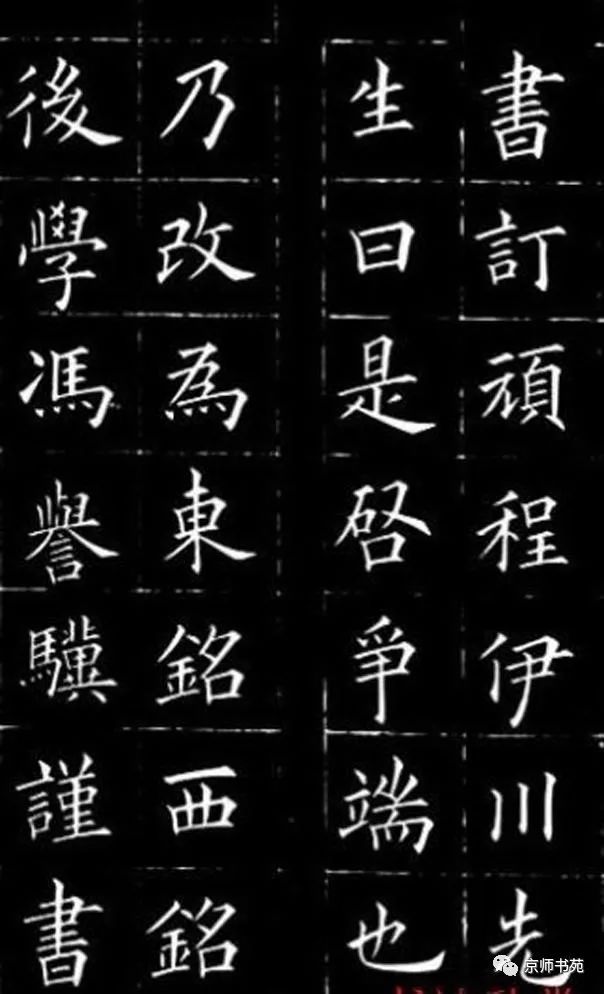 書訂頑程伊川先
生曰是啓爭端也
乃改為東銘西銘
後學馮譽驥謹書
京师书苑